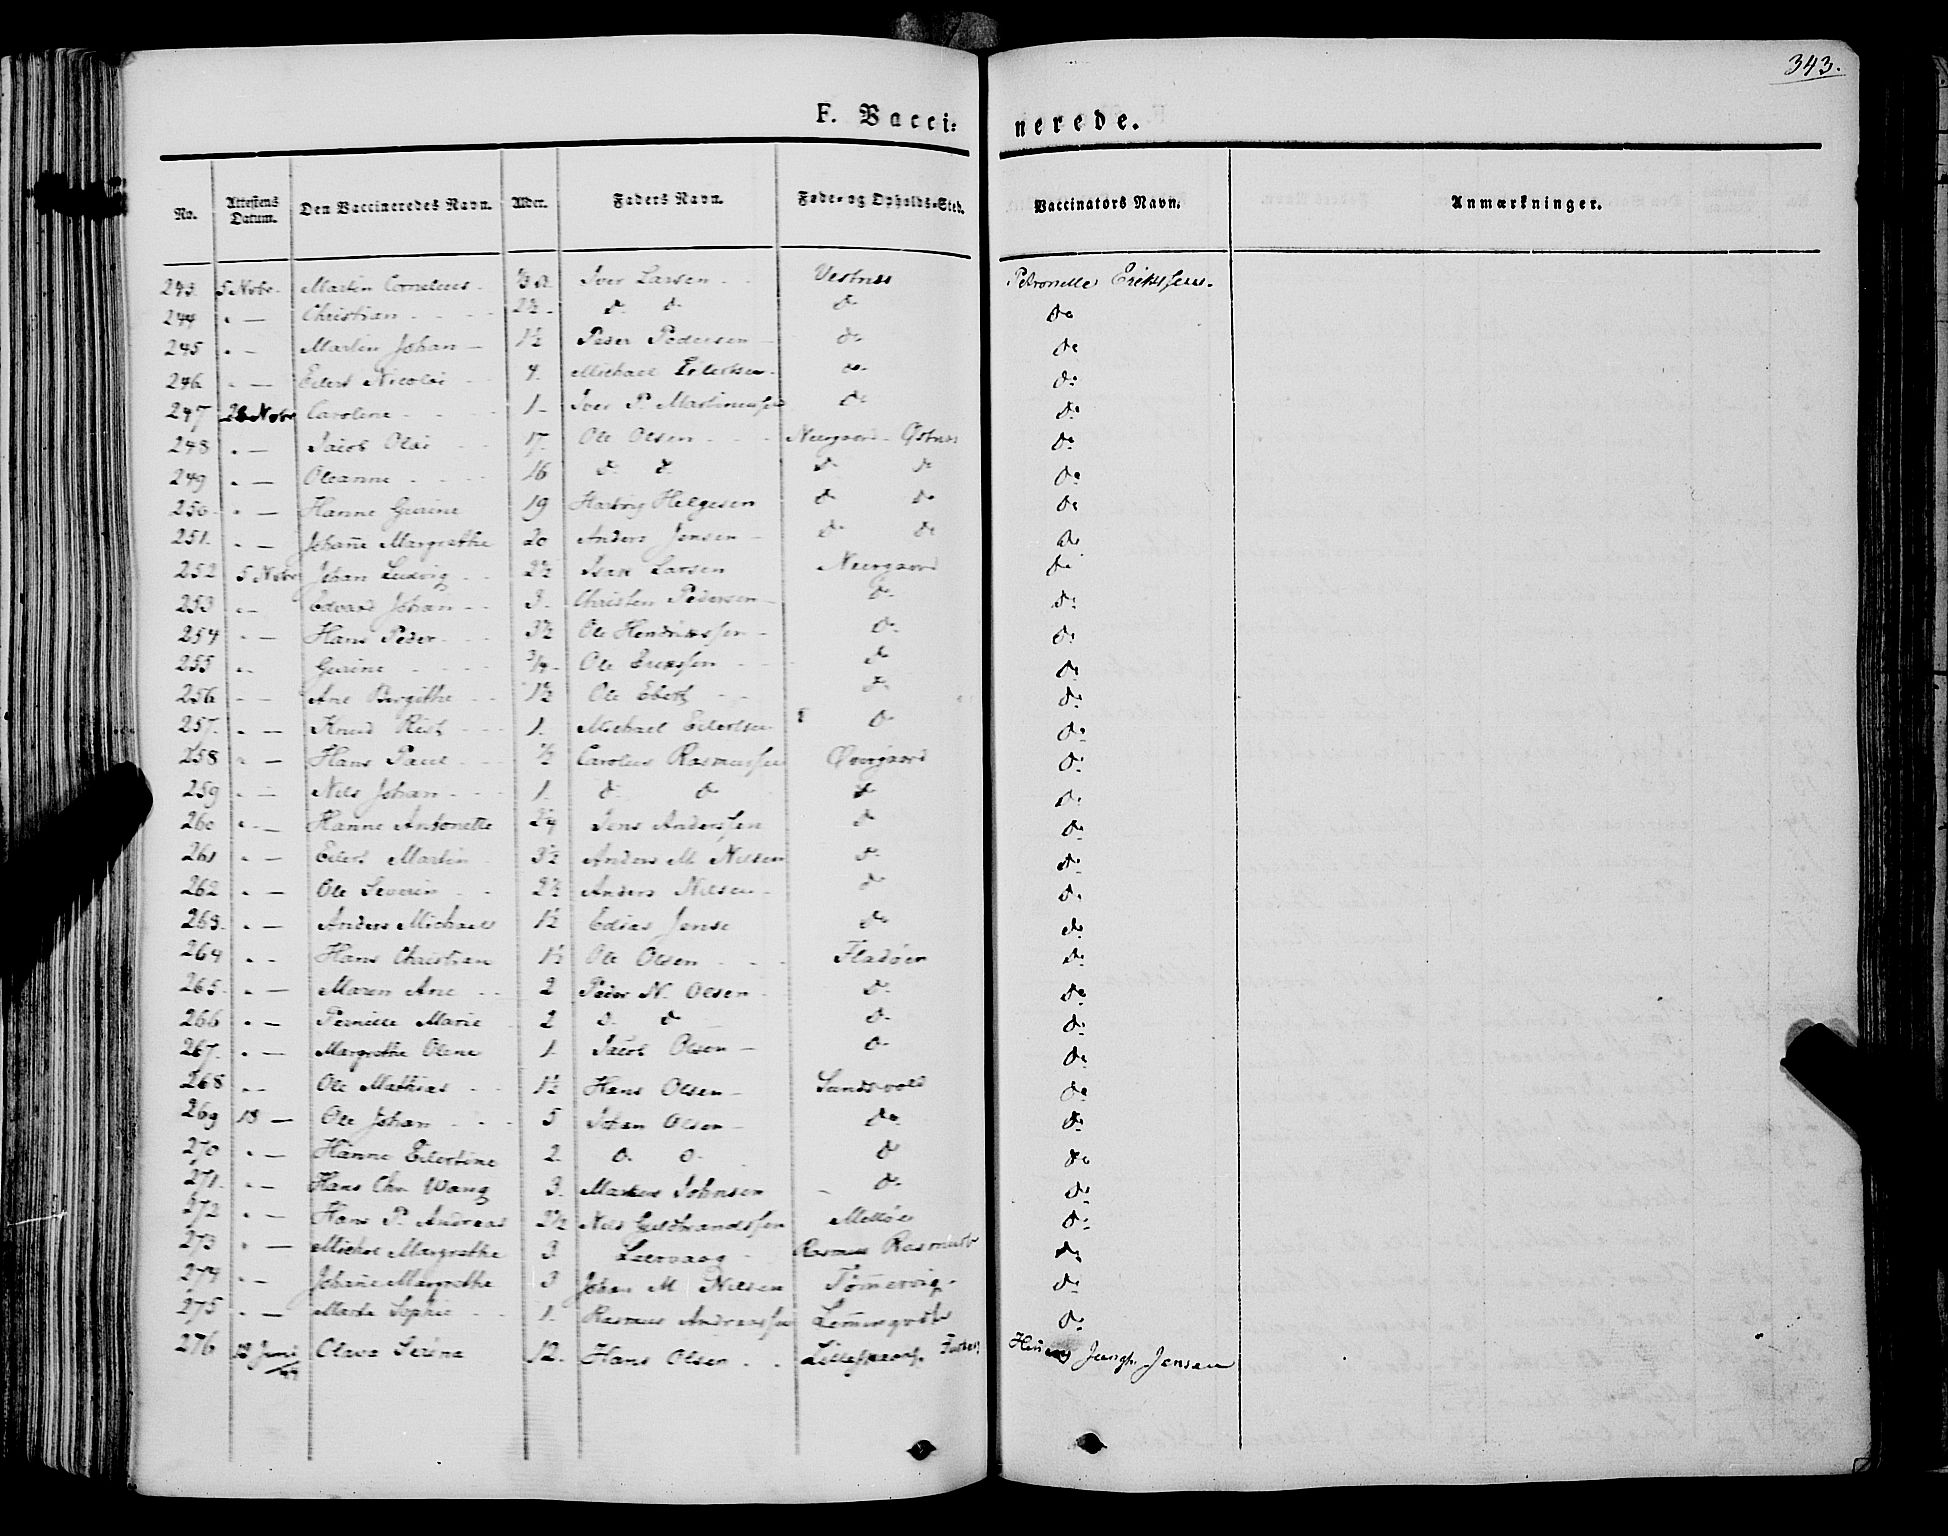 343.
F. Vacci: nerede.
No. Attestens Datum. Den Vaccineredes Navn. Alder. Faders Navn. Føde- og Opholds-Sted. Vaccinators Navn. Anmærkninger.
243. 5 Novbr Martin Cornelius Iver Larsen Vestnes Petronelle Erikssen.
244 " — Christian 2½ do do do do
245 " — Martin Johan — 1½ Peder Pedersen do do
246 " — Eilert Nicolai 4. Michael Eilertsen do do
247 26 Novbr Caroline 1 Iver P. Martinussen do do
248 " — Jacob Olai 17. Ole Olsen Neergaard Østnes do
249 " — Oleanne 16 do do do do do
250 " — Hanne Gurine 19 Hartvig Helgesen do do do
251. " — Johañe Margrethe 20 Anders Jensen — do do do
252 5 Novbr Johan Ludvig 2½ Isak Larsen Neergaard do
253 " — Edvard Johan 3. Christen Pedersen — do do
254 " — Hans Peder 3½ Ole Hendrikssen — do do
255 " Gurine ¾ Ole Erikssen do do
256 " — Ane Bergithe 1½ Ole Ebert do do
257. " — Knud 1. Michael Eilertsen do do
258 " — Hans Paul ½ Carolus Rasmussen Øvergaard do
259 " — Nils Johan 1. do do do do
260 " — Hanne Antonette Jens Anderssen do do
261 " — Eilert Martin 3½ Anders M Nilsen do do
262 " — Ole Severin 2½ Anders Nilsen do do
263. " — Anders Michael 1½ Edias Jense do do
264 " — Hans Christian 1½ Ole Olsen Fladøen do
265. " — Maren Ane 2 Peder N. Olsen do do
266 " — Pernille Marie 2 do do do do
267. " — Margrethe Olene 1. Jacob Olsen — do do
268 " — Ole Mathias 1½ Hans Olsen — Sandsvold do
269 18 — Ole Johan 5 Johan Olsen — do do
270 " — Hanne Eilertine 2. do do do do
271. " — Hans Chr Wang 3. Johnsen do do
272 " — Hans P. Andreas 2½ Nils Guldbrandssen do
273 " — Michel Margrethe 3. Leervaag Rasmus do
274 " — Johañe Margrethe 3 Johan M Nilsen Tom̃ervig do
275 " — Marta Sophie 1. Rasmus Andreassen do
276 Juni Olava Serine 12. Hans Olsen Jensen